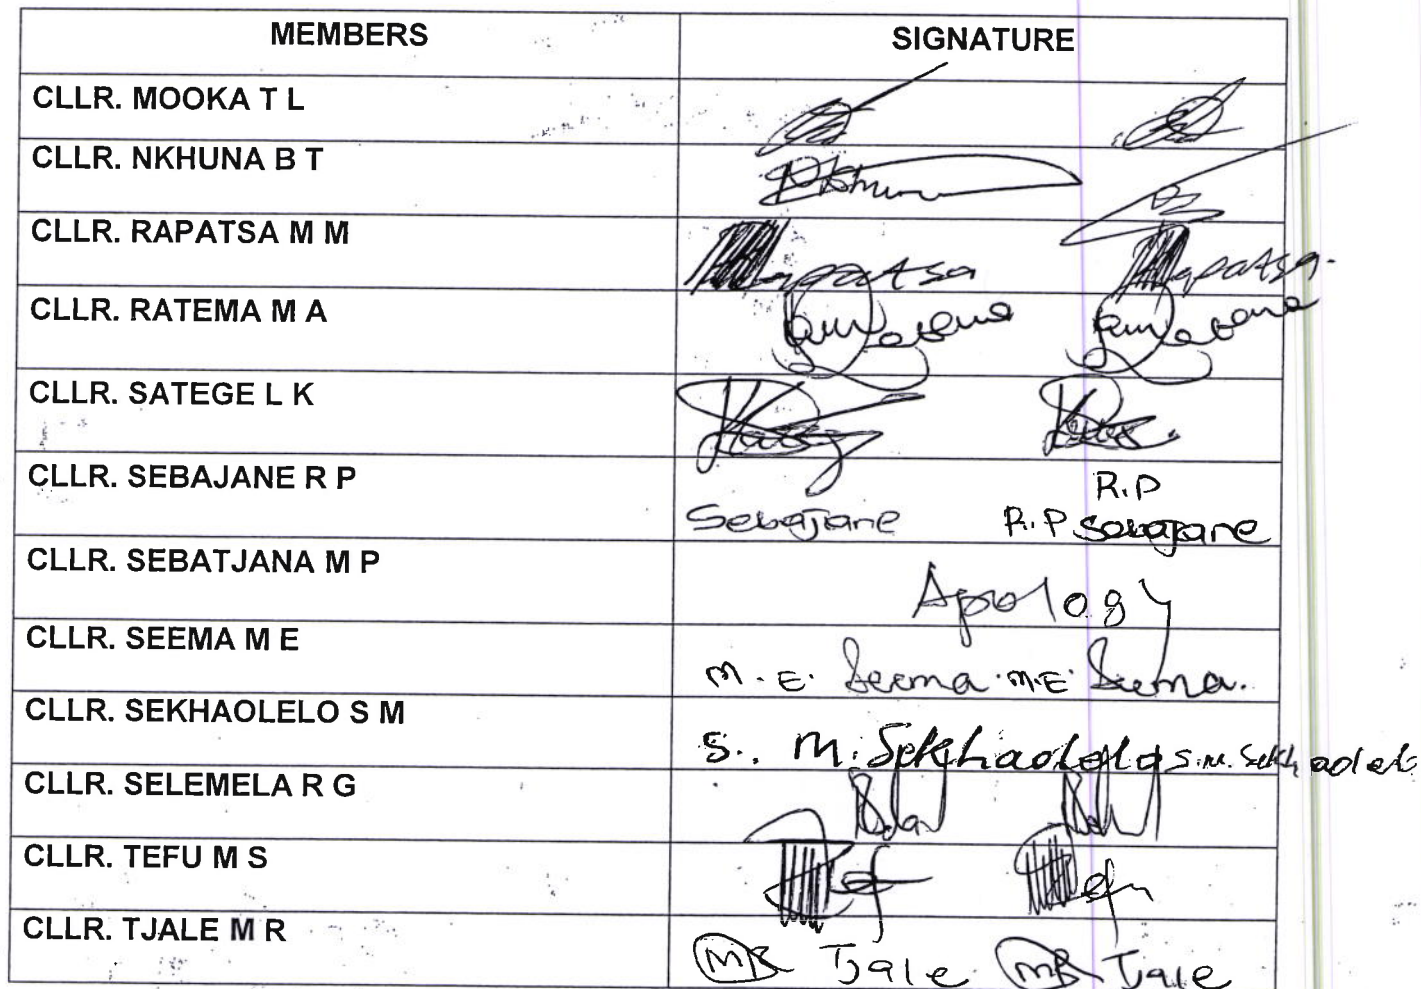 MEMBERS SIGNATURE
CLLR. MOOKA T L
CLLR. NKHUNA B T
CLLR. RAPATSA M M
CLLR. RATEMA M A
CLLR. SATEGE L K
CLLR. SEBAJANE R P
R.P
Sebajane R.P Sebajane
CLLR. SEBATJANA M P
Apology
CLLR. SEEMA M E
M. E. Seema M.E. Seema.
CLLR. SEKHAOLELO S M
S. M. Sekhaolelo S.M. Sekhaolelo
CLLR. SELEMELA R G
CLLR. TEFU M S
CLLR. TJALE M R
MR Tjale MR Tjale